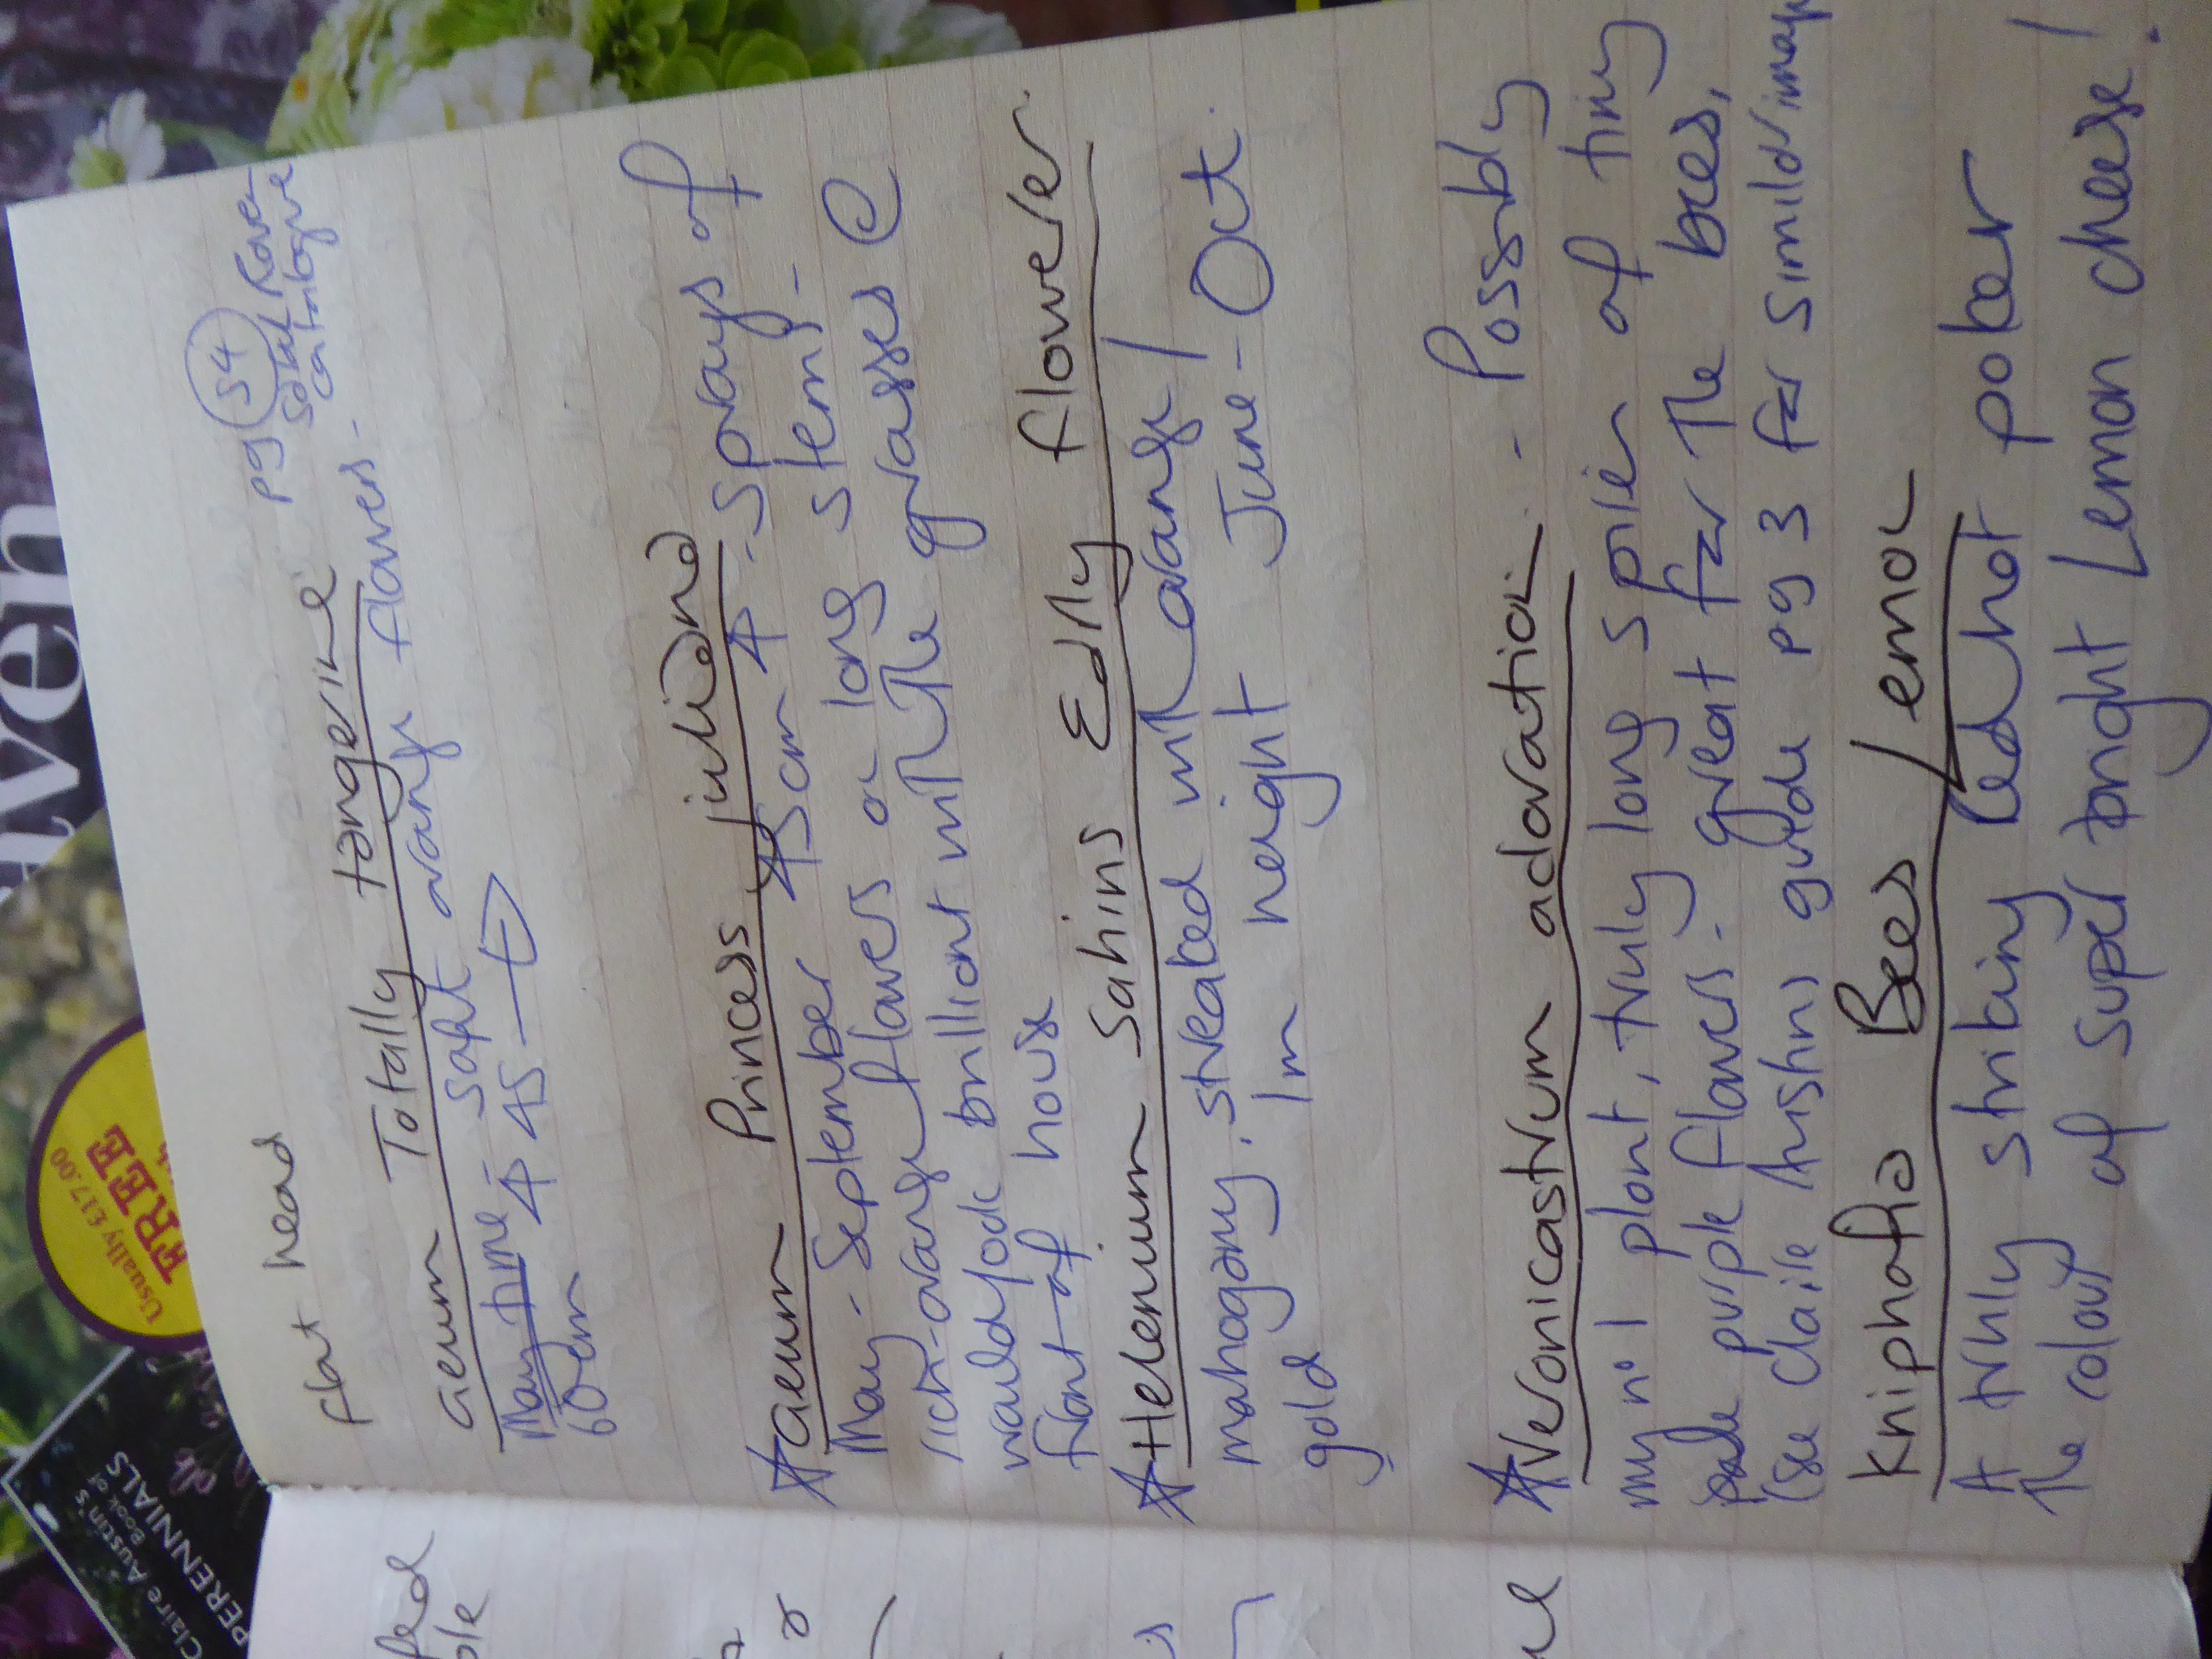 aven
Usually £17.00
FREE
Claire Austin's
Book of
PERENNIALS
flat head
pg 54
Sarah Raven
catalogue
Geum Totally tangerine
May time soft orange flowers.
↑ 45 →
60cm
☆ Geum Princess juliana
May - September 45cm ↑ - sprays of
rich-orange flowers on long stems -
would look brilliant with the grasses @
front of house
☆ Helenium Sahins Early flowerer
mahogany, streaked with orange /
gold 1m height June - Oct.
☆ Veronicastrum adoration - Possibly
my no 1 plant, truly long spires of tiny
pale purple flowers - great for the bees,
(see Claire Austins guide pg 3 for similar image
Kniphofia Bees Lemon
A truly striking Red hot poker
The colour of super bright Lemon cheese!